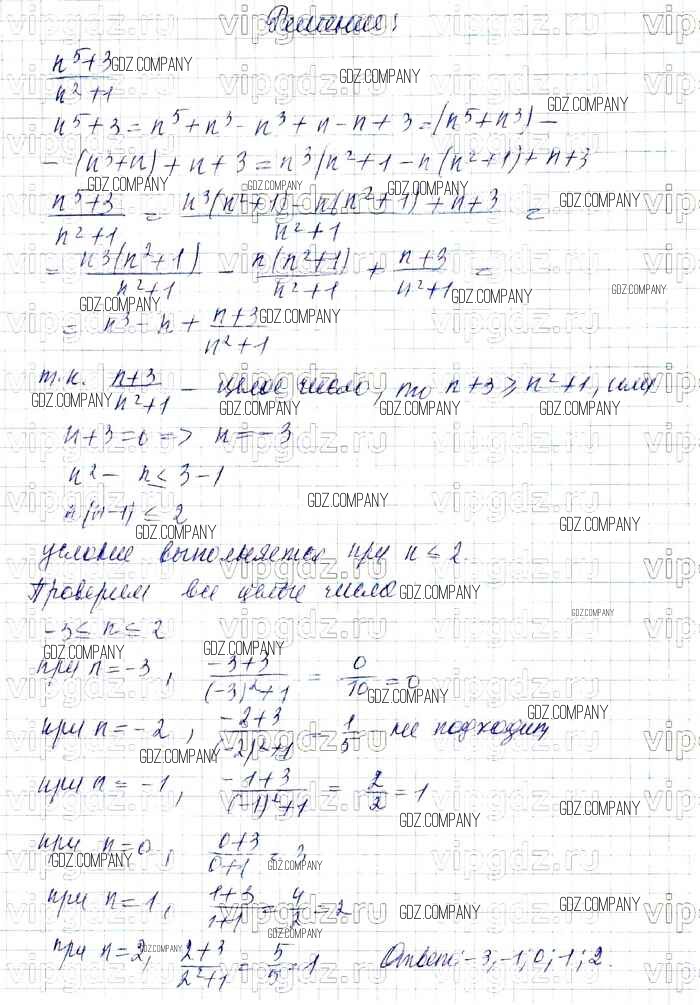 Решение:
n⁵+3 / n²+1
n⁵+3 = n⁵+n³-n³+n-n+3 = (n⁵+n³) -
- (n³+n) + n+3 = n³(n²+1 - n(n²+1) + n+3
n⁵+3 / n²+1 = n³(n²+1) - n(n²+1) + n+3 / n²+1 =
= n³(n²+1) / n²+1 - n(n²+1) / n²+1 + n+3 / n²+1 =
= n³ - n + n+3 / n²+1
т.к. n+3 / n²+1 - целое число, то n+3 ≥ n²+1, или
n+3=0 => n=-3
n² - n ≤ 3-1
n(n-1) ≤ 2
условие выполняется при n ≤ 2.
Проверим все целые числа
-3 ≤ n ≤ 2
при n=-3, -3+3 / (-3)²+1 = 0/10 = 0
при n=-2, -2+3 / (-2)²+1 = 1/5 не подходит
при n=-1, -1+3 / (-1)²+1 = 2/2 = 1
при n=0, 0+3 / 0+1 = 3
при n=1, 1+3 / 1+1 = 4/2 = 2
при n=2, 2+3 / 2²+1 = 5/5 = 1 Ответ: -3; -1; 0; 1; 2.